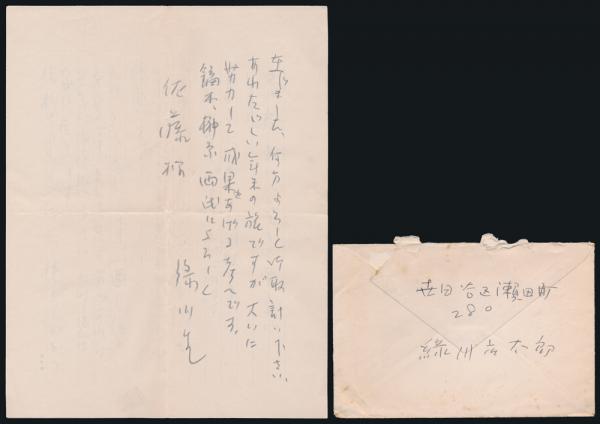 ました、何分よろしく御取計い下さい。
あわただしい年末の旅ですが大いに
努力して成果をあげる考へです。
両氏によろしく
佐藤様
緑川生
世田谷区瀬田町
280
緑川
太郎